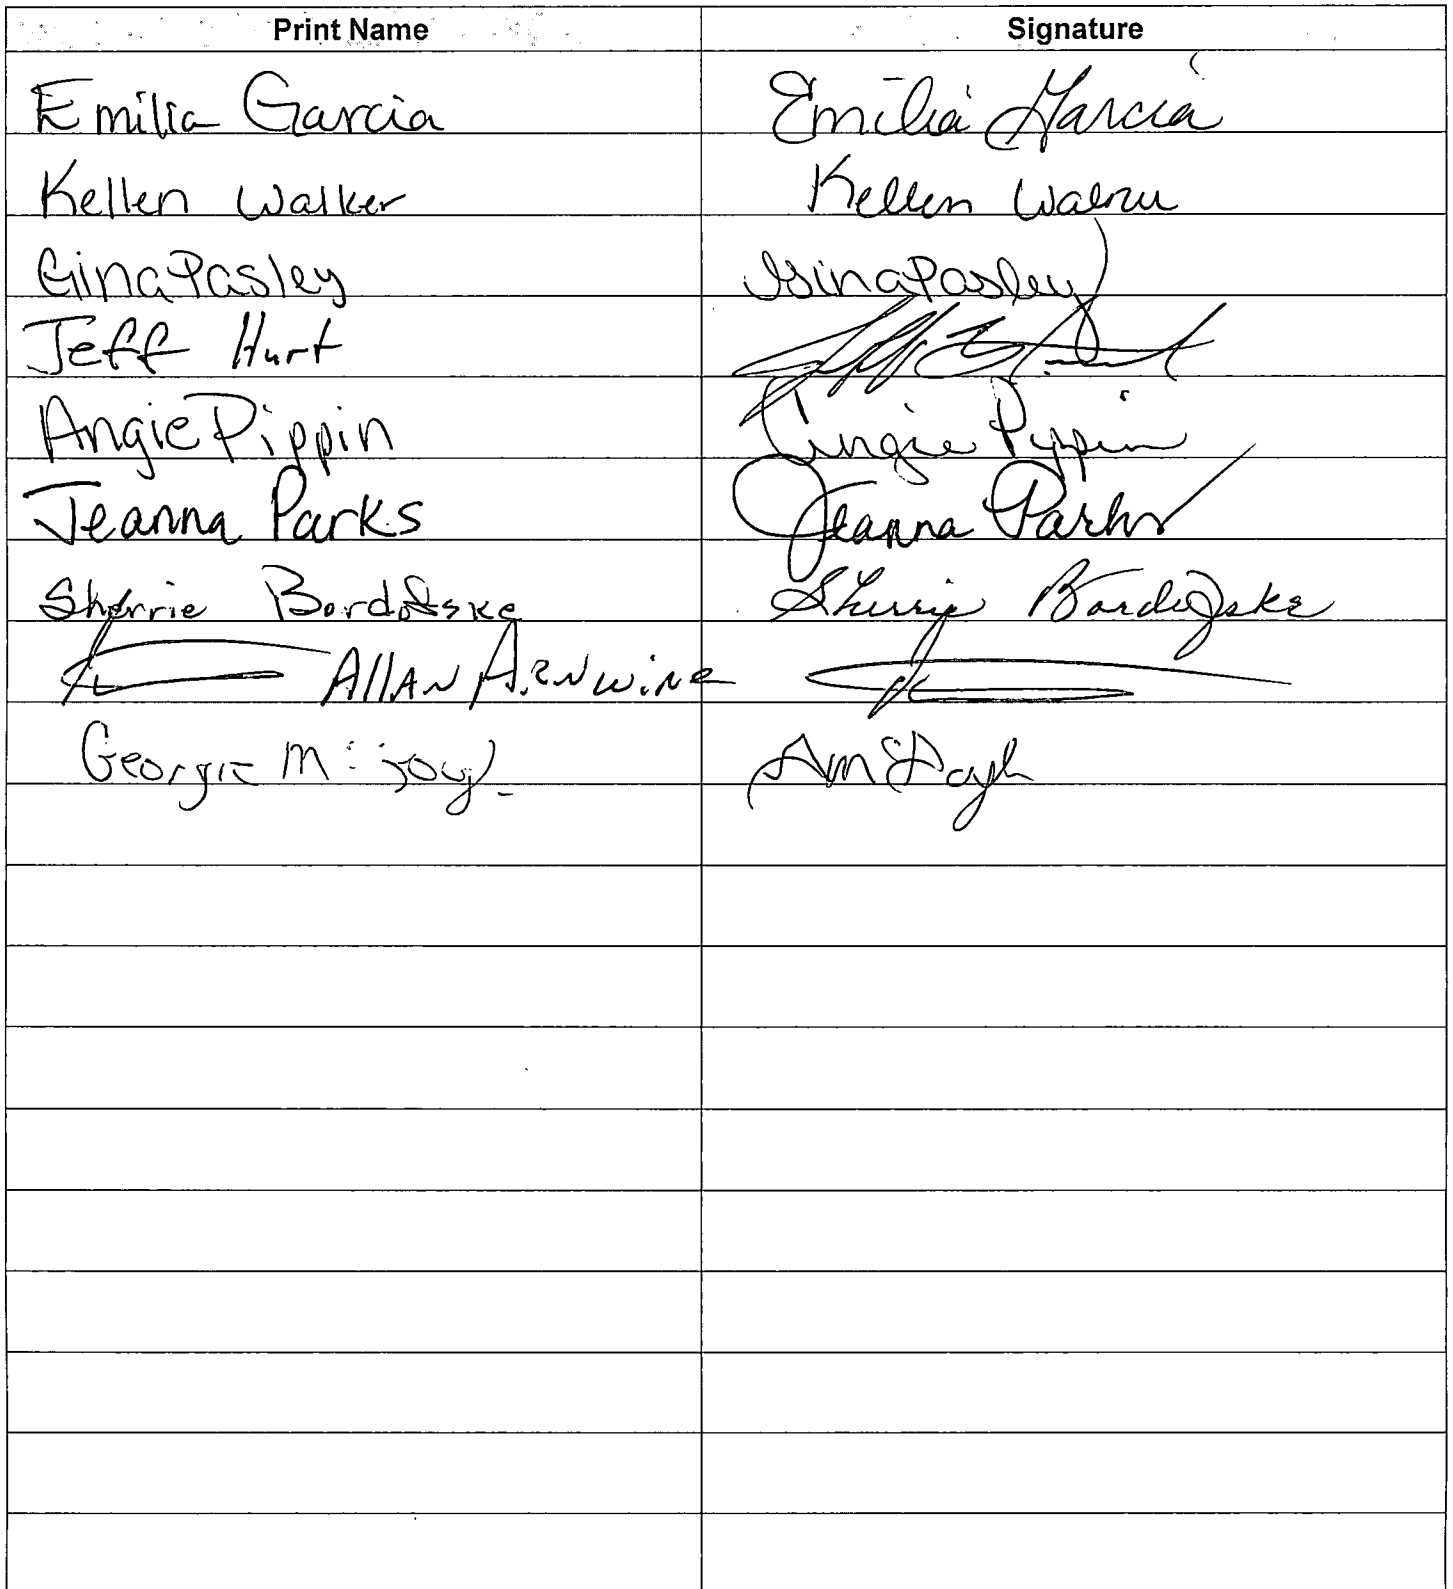 Print Name Signature
Emilia Garcia Emilia Garcia
Kellen Walker Kellen Walker
Gina Pasley Gina Pasley
Jeff Hurt
Angie Pippin Angie Pippin
Jeanna Parks Jeanna Parks
Sherrie Sherrie
Allan Arnwine
Georgie